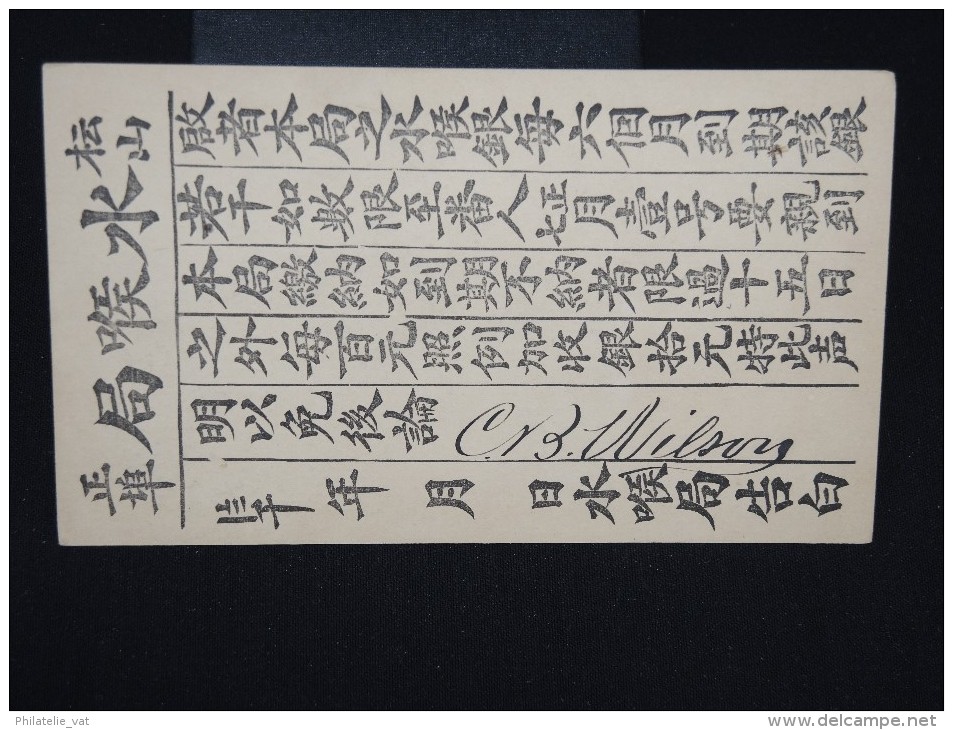 枟山水喉局正單
啟者本局之水喉銀每六個月到期該銀
若干如數限至番人七正月壹号要親到
本局繳納如到期不納者限過十五日
之外每百元照例加收銀拾元特此声
明以免後論 C.B. Wilson
年 月 日水喉局告白
Philatelie_vat
http://www.delcampe.net